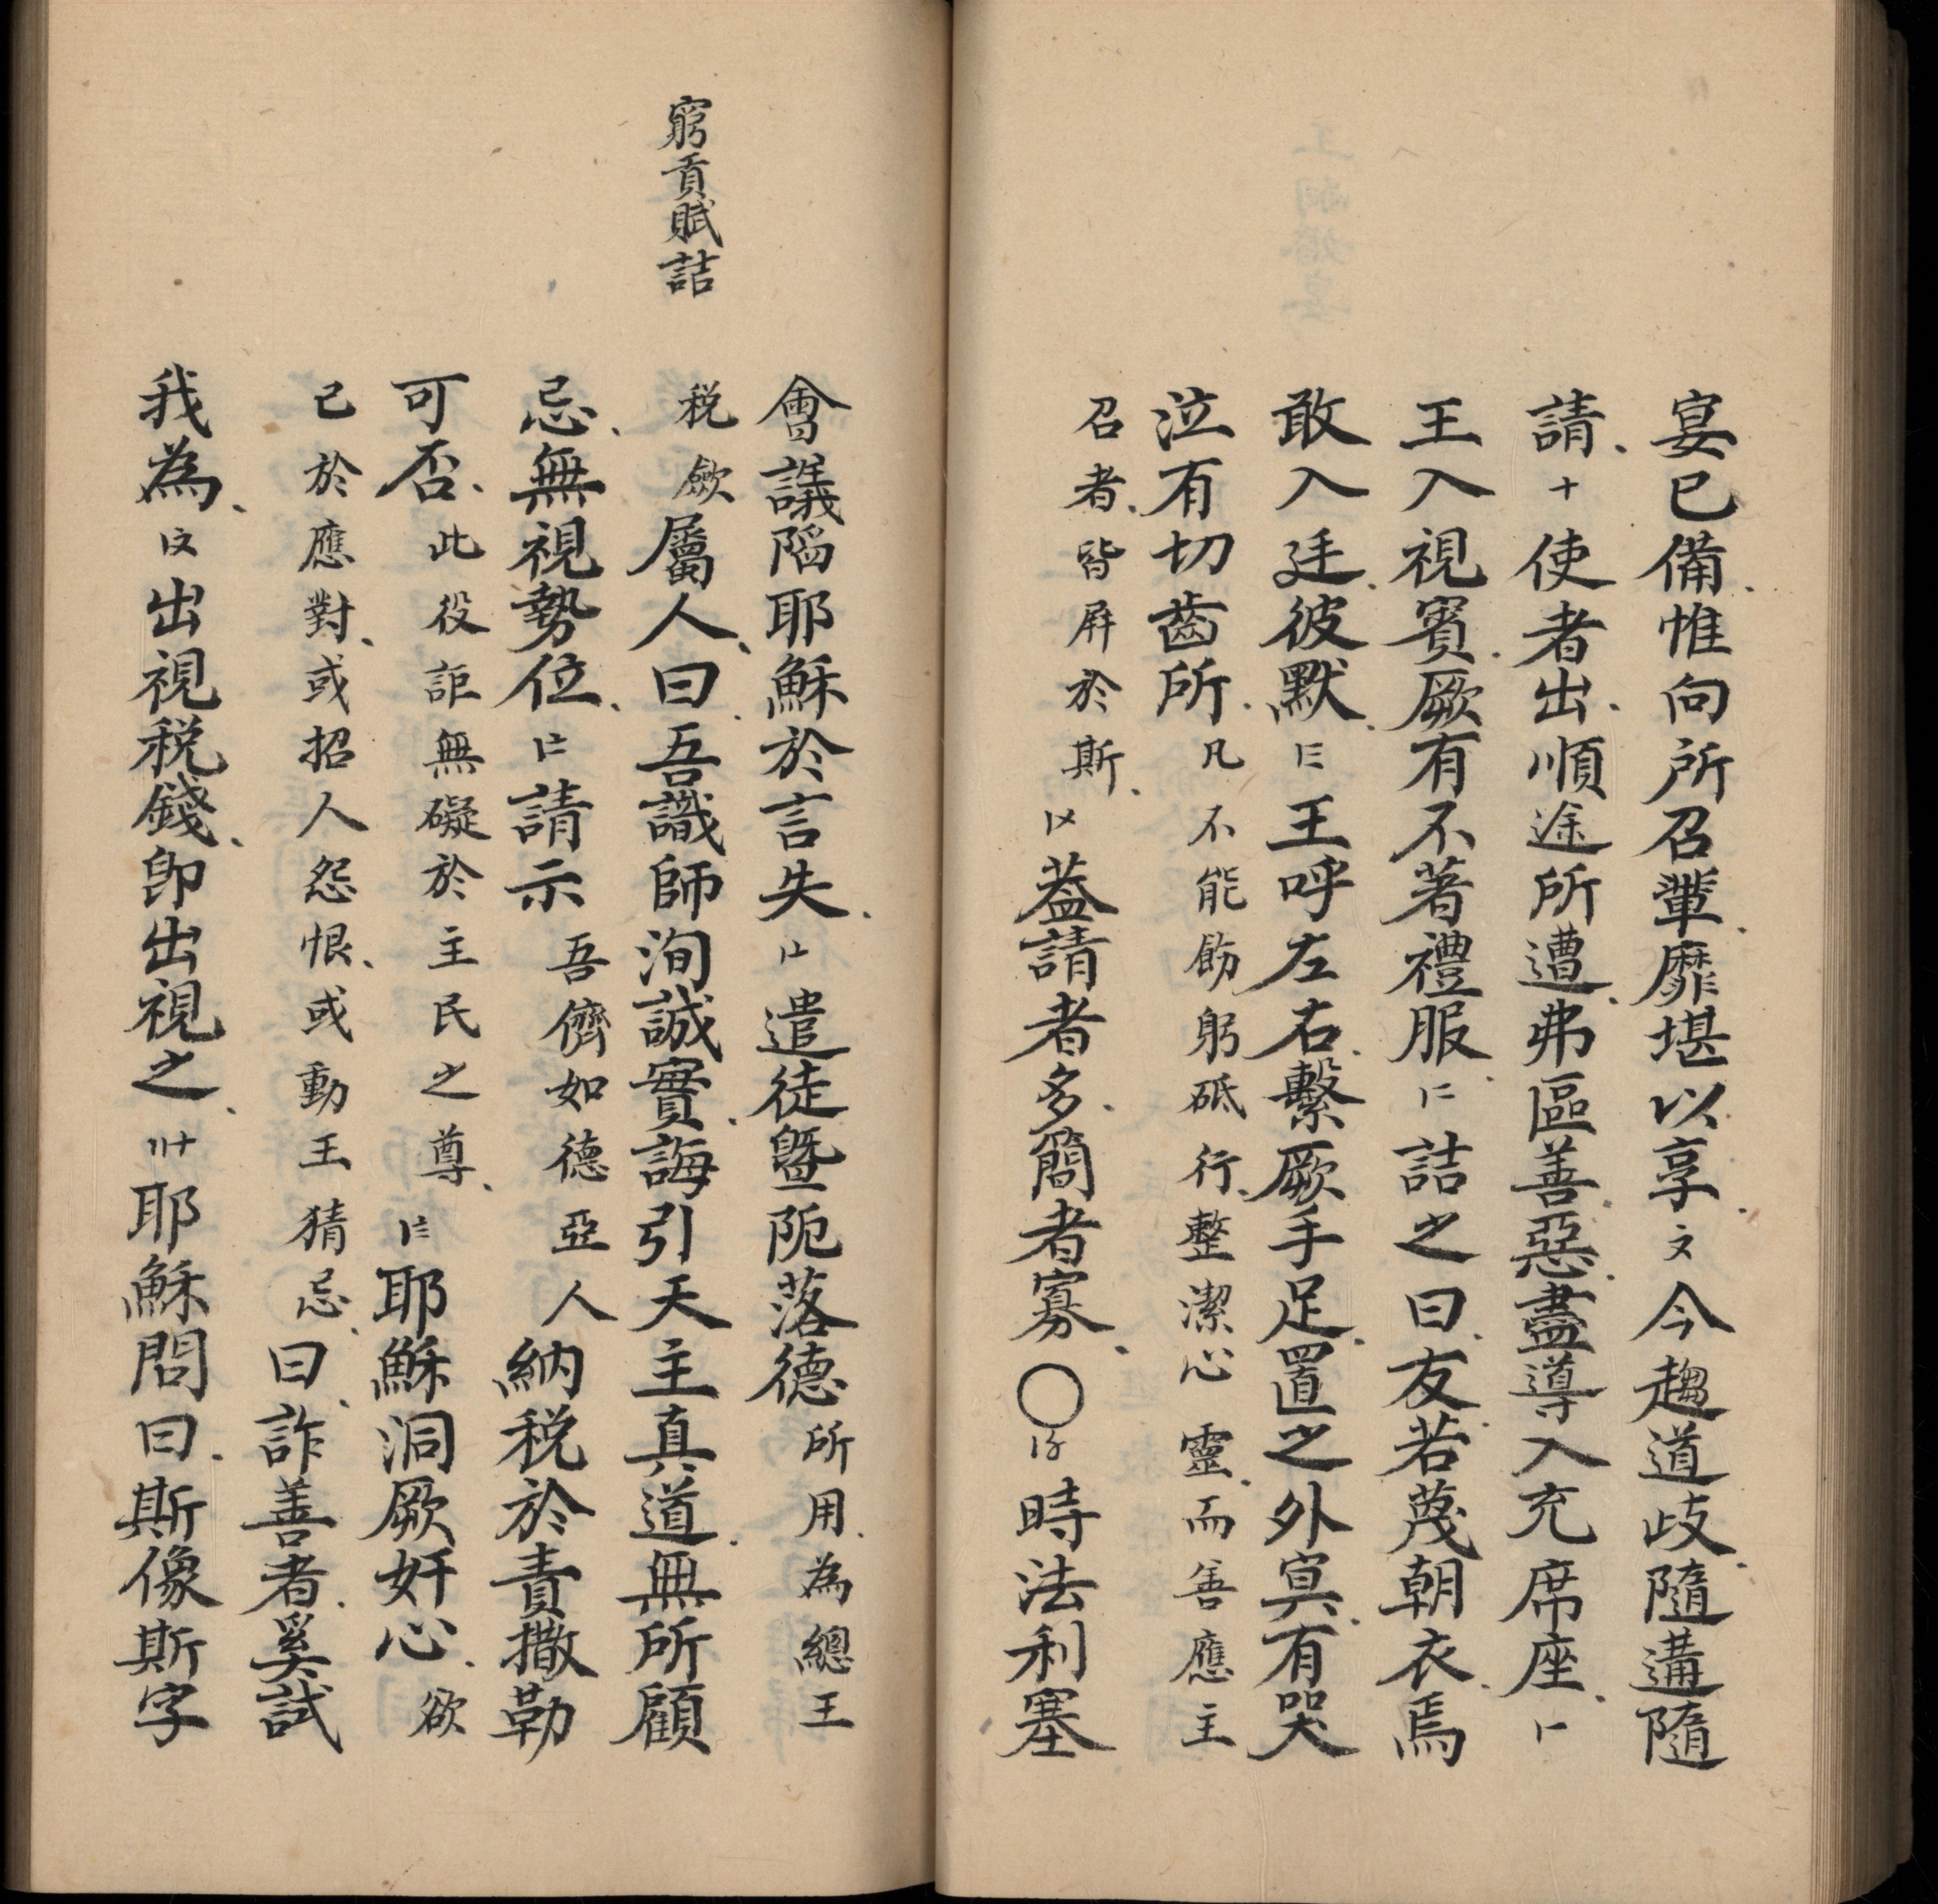 宴已備惟向所召輩靡堪以享〤今趨道歧隨遘隨
請十使者出順途所遭弗區善惡盡導入充席座〡
王入視賓厥有不著禮服〢詰之曰友若蔑朝衣焉
敢入廷彼默〣王呼左右繫厥手足置之外寘有哭
泣有切齒所凡不能飭躬砥行整潔心靈而善應主
召者皆屏於斯〤蓋請者多簡者寡〇〥時法利塞
窮貢賦詰
會議陷耶穌於言失〦遣徒暨阨落德所用為總王
稅斂屬人曰吾識師洵誠實誨引天主真道無所顧
忌無視勢位〧請示吾儕如德亞人納稅於責撒勒
可否此役詎無礙於主民之尊〨耶穌洞厥奸心欲
己於應對或招人怨恨或動王猜忌曰詐善者奚試
我為〩出視稅錢即出視之〹耶穌問曰斯像斯字